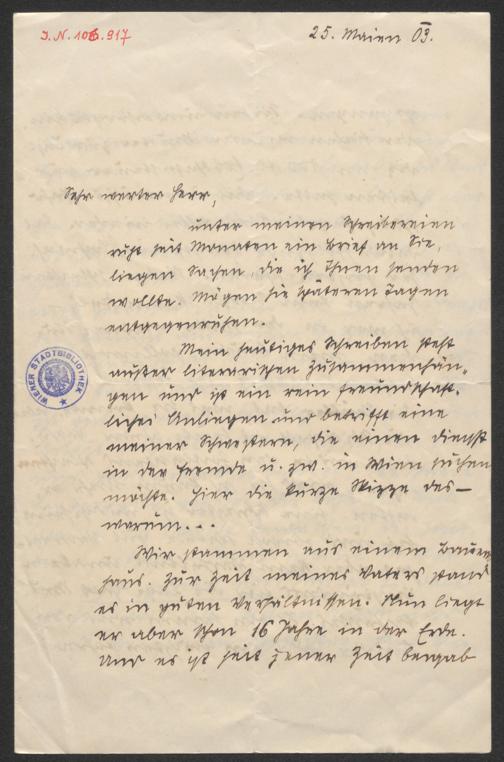 J.N. 106.917
25. Maien 03.
Sehr werter Herr,
unter meinen Schreibereien
ruht seit Monaten ein Brief an Sie,
liegen Sachen, die ich Ihnen senden
wollte. Mögen sie späteren Tagen
entgegenruhen.
Mein heutiges Schreiben steht
außer literarischen Zusammenhän-
gen und ist ein rein freundschaft-
liches Anliegen und betrifft eine
meiner Schwestern, die einen Dienst
in der Fremde u. zw. in Wien suchen
möchte. Hier die kurze Skizze des—
warum...
Wir stammen aus einem Bauern
haus. Zur Zeit meines Vaters stand
es in guten Verhältnissen. Nun liegt
er aber schon 16 Jahre in der Erde.
Und es ist seit jener Zeit bergab
WIENER STADTBIBLIOTHEK